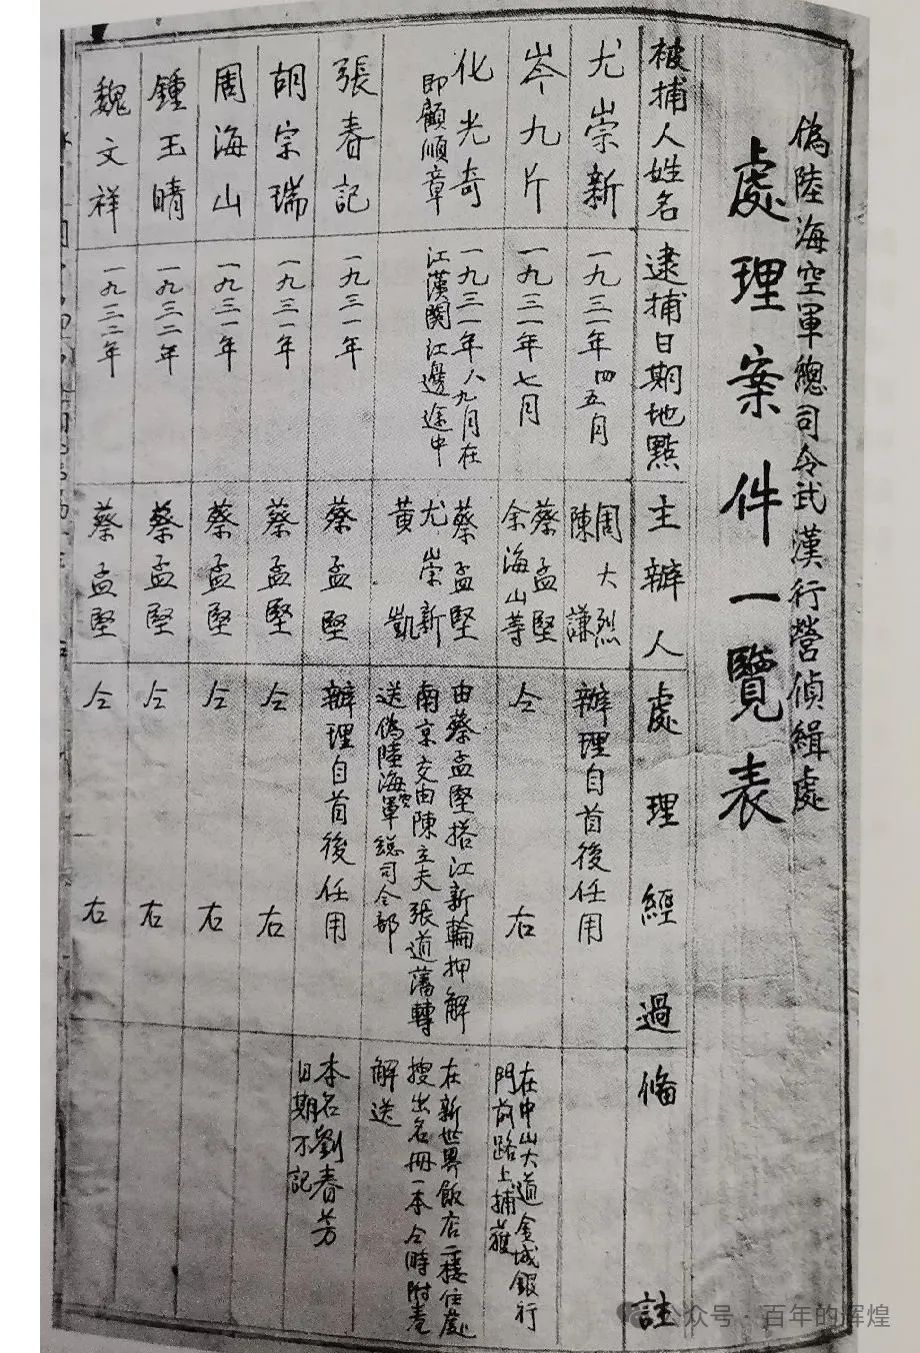 偽陸海空軍總司令武漢行營偵緝處
處理案件一覽表
被捕人姓名
逮捕日期地點
主辦人
處理經過
備註
尤崇新
一九三一年四五月
周大烈
陳 謙
辦理自首後任用
岑九片
一九三一年七月
蔡孟堅
余海山等
仝右
在中山大道金城銀行
門前路上捕獲
化光奇
即顧順章
一九三一年八九月在
江漢関江邊途中
蔡孟堅
尤崇新
黃凱
由蔡孟堅搭江新輪押解
南京交由陳立夫張道藩轉
送偽陸海空軍総司令部
在新世界飯店二楼住處
搜出名冊一本仝時附卷
解送
張春記
一九三一年
蔡孟堅
辦理自首後任用
本名劉春芳
日期不記
胡宗瑞
一九三一年
蔡孟堅
仝右
周海山
一九三一年
蔡孟堅
仝右
鍾玉晴
一九三二年
蔡孟堅
仝右
魏文祥
一九三二年
蔡孟堅
仝右
公众号·百年的辉煌